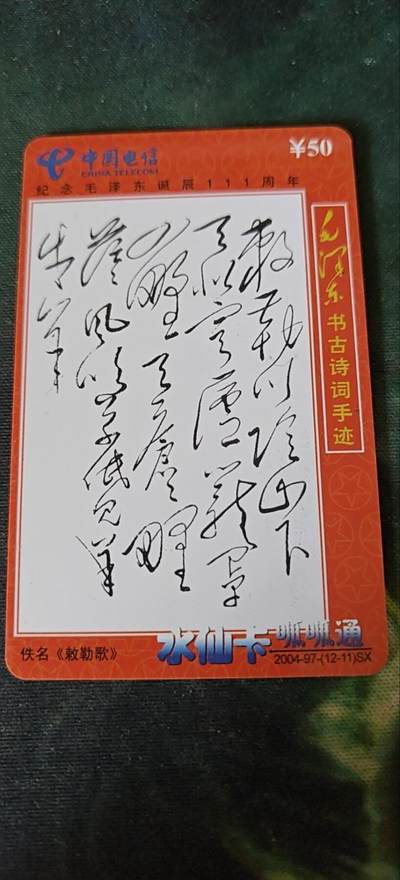 中国电信
CHINA TELECOM
¥50
纪念毛泽东诞辰111周年
毛泽东书古诗词手迹
敕勒川阴山下
天似穹廬籠罩
四野天苍苍野
茫茫風吹草低見
牛羊
佚名《敕勒歌》
水仙卡呱呱通
2004-97-(12-11)SX